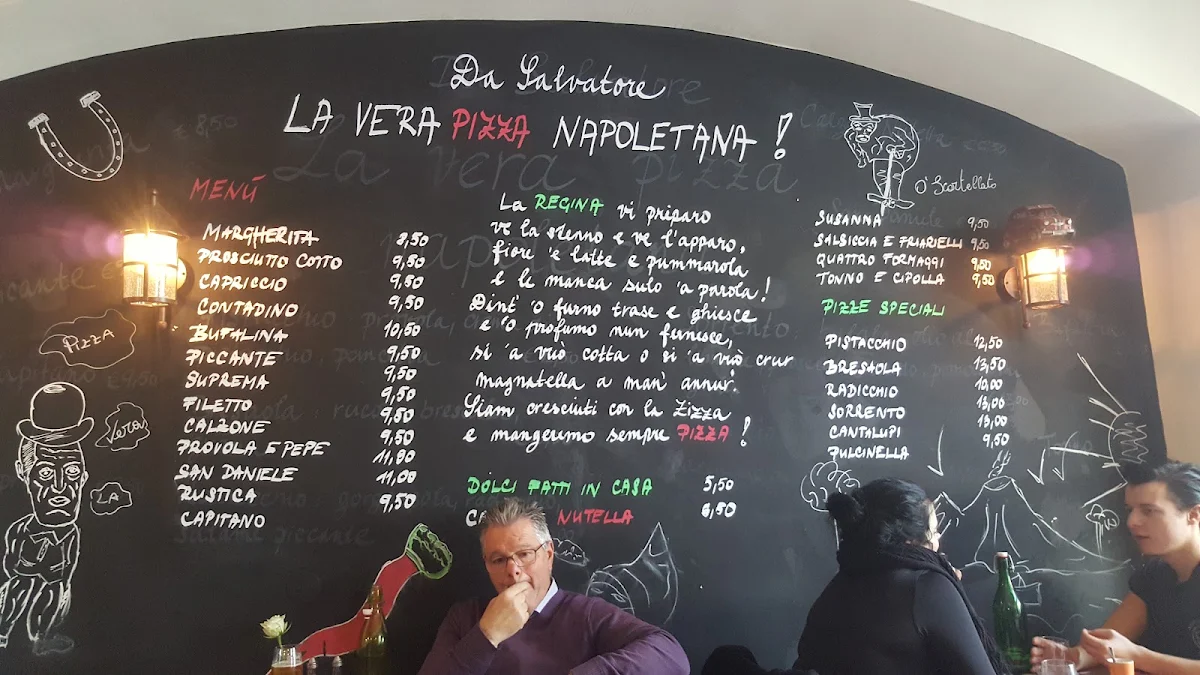 Da Salvatore
LA VERA PIZZA NAPOLETANA !
O' Scartellato
MENÚ
MARGHERITA 8,50
PROSCIUTO COTTO 9,50
CAPRICCIO 9,50
CONTADINO 9,50
BUFALINA 10,50
PICCANTE 9,50
SUPREMA 9,50
FILETTO 9,50
CALZONE 9,50
PROVOLA E PEPE 9,50
SAN DANIELE 11,80
RUSTICA 11,00
CAPITANO 9,50
La REGINA vi preparo
ve la stenno e ve l'apparo,
fiore 'e latte e pummarola
e le manca sulo 'a parola!
Dint' 'o furno trase e ghiesce
e 'o profumo nun fernesce,
si 'a vuò cotta o si 'a vuò crur
magnatella a man' annur.
Siam cresciuti con la zizza
e mangeremo sempre PIZZA !
DOLCI FATTI IN CASA 5,50
NUTELLA 6,50
SUSANNA 9,50
SALSICCIA E FRIARIELLI 9,50
QUATTRO FORMAGGI 9,50
TONNO E CIPOLLA 9,50
PIZZE SPECIALI
PISTACCHIO 12,50
BRESAOLA 13,50
RADICCHIO 10,00
SORRENTO 13,00
CANTALUPI 13,00
PULCINELLA 9,50
PIZZA
Vera
LA